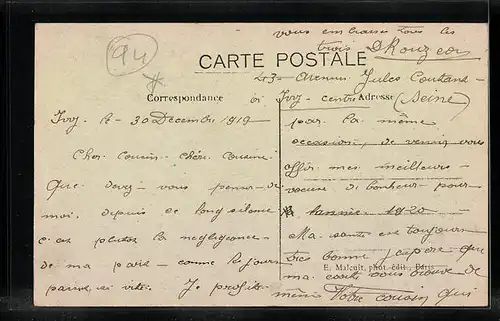 94
vous embrasse tous les
trois D Rouzeau
CARTE POSTALE
43 - Avenue Jules Coutant -
Correspondance
à Ivry - centre
Adresse
(Seine)
Ivry le - 30 Décembre 1919
par la même
occasion, de venir vous
Cher Cousin - chère Cousine
offrir mes meilleurs -
Que devez - vous penser de
vœux de bonheur - pour
moi, depuis ce long silence
l'année 1920
c'est plutôt la négligeance
Ma santé est toujours
très bonne j'espère que
de ma part comme le jour
E. Malcuit, phot. édit., Paris
ma carte vous trouve de
parait si vite. Je profite
même Votre cousin qui